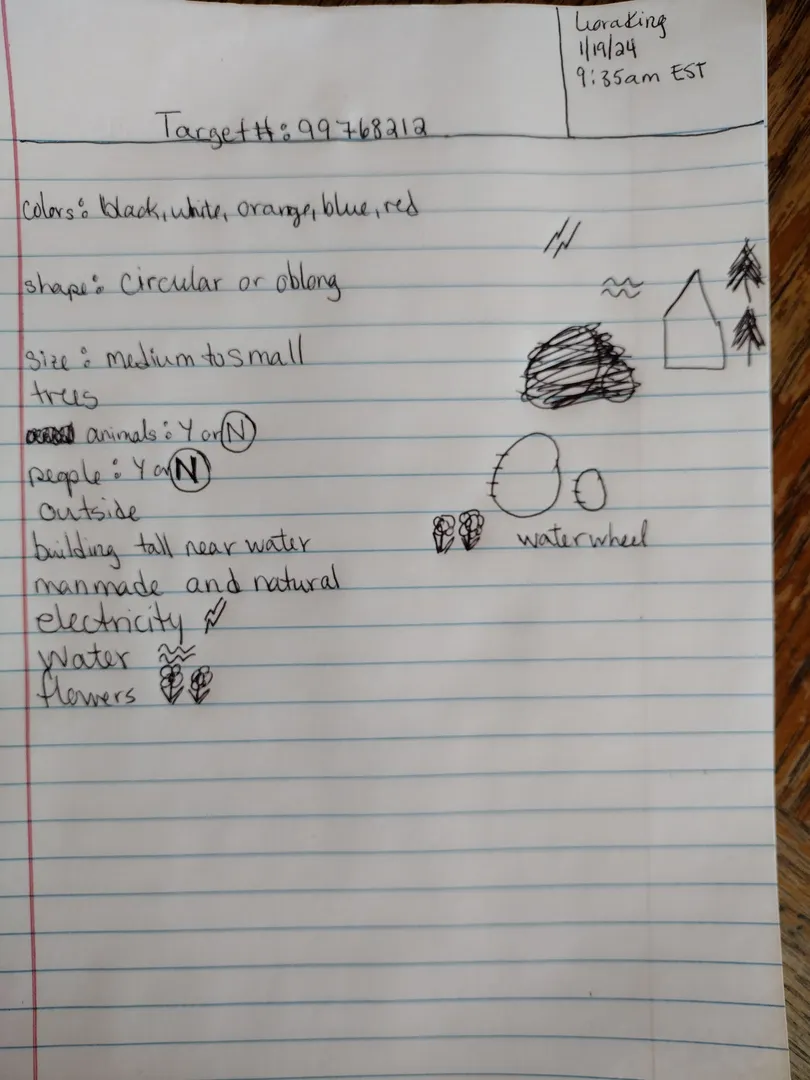 LoraKing
1/19/24
9:35am EST
Target#: 99768212
colors: black, white, orange, blue, red
shape: circular or oblong
size: medium to small
trees
animals: Y or N
people: Y or N
outside
building tall near water
waterwheel
manmade and natural
electricity
water
flowers